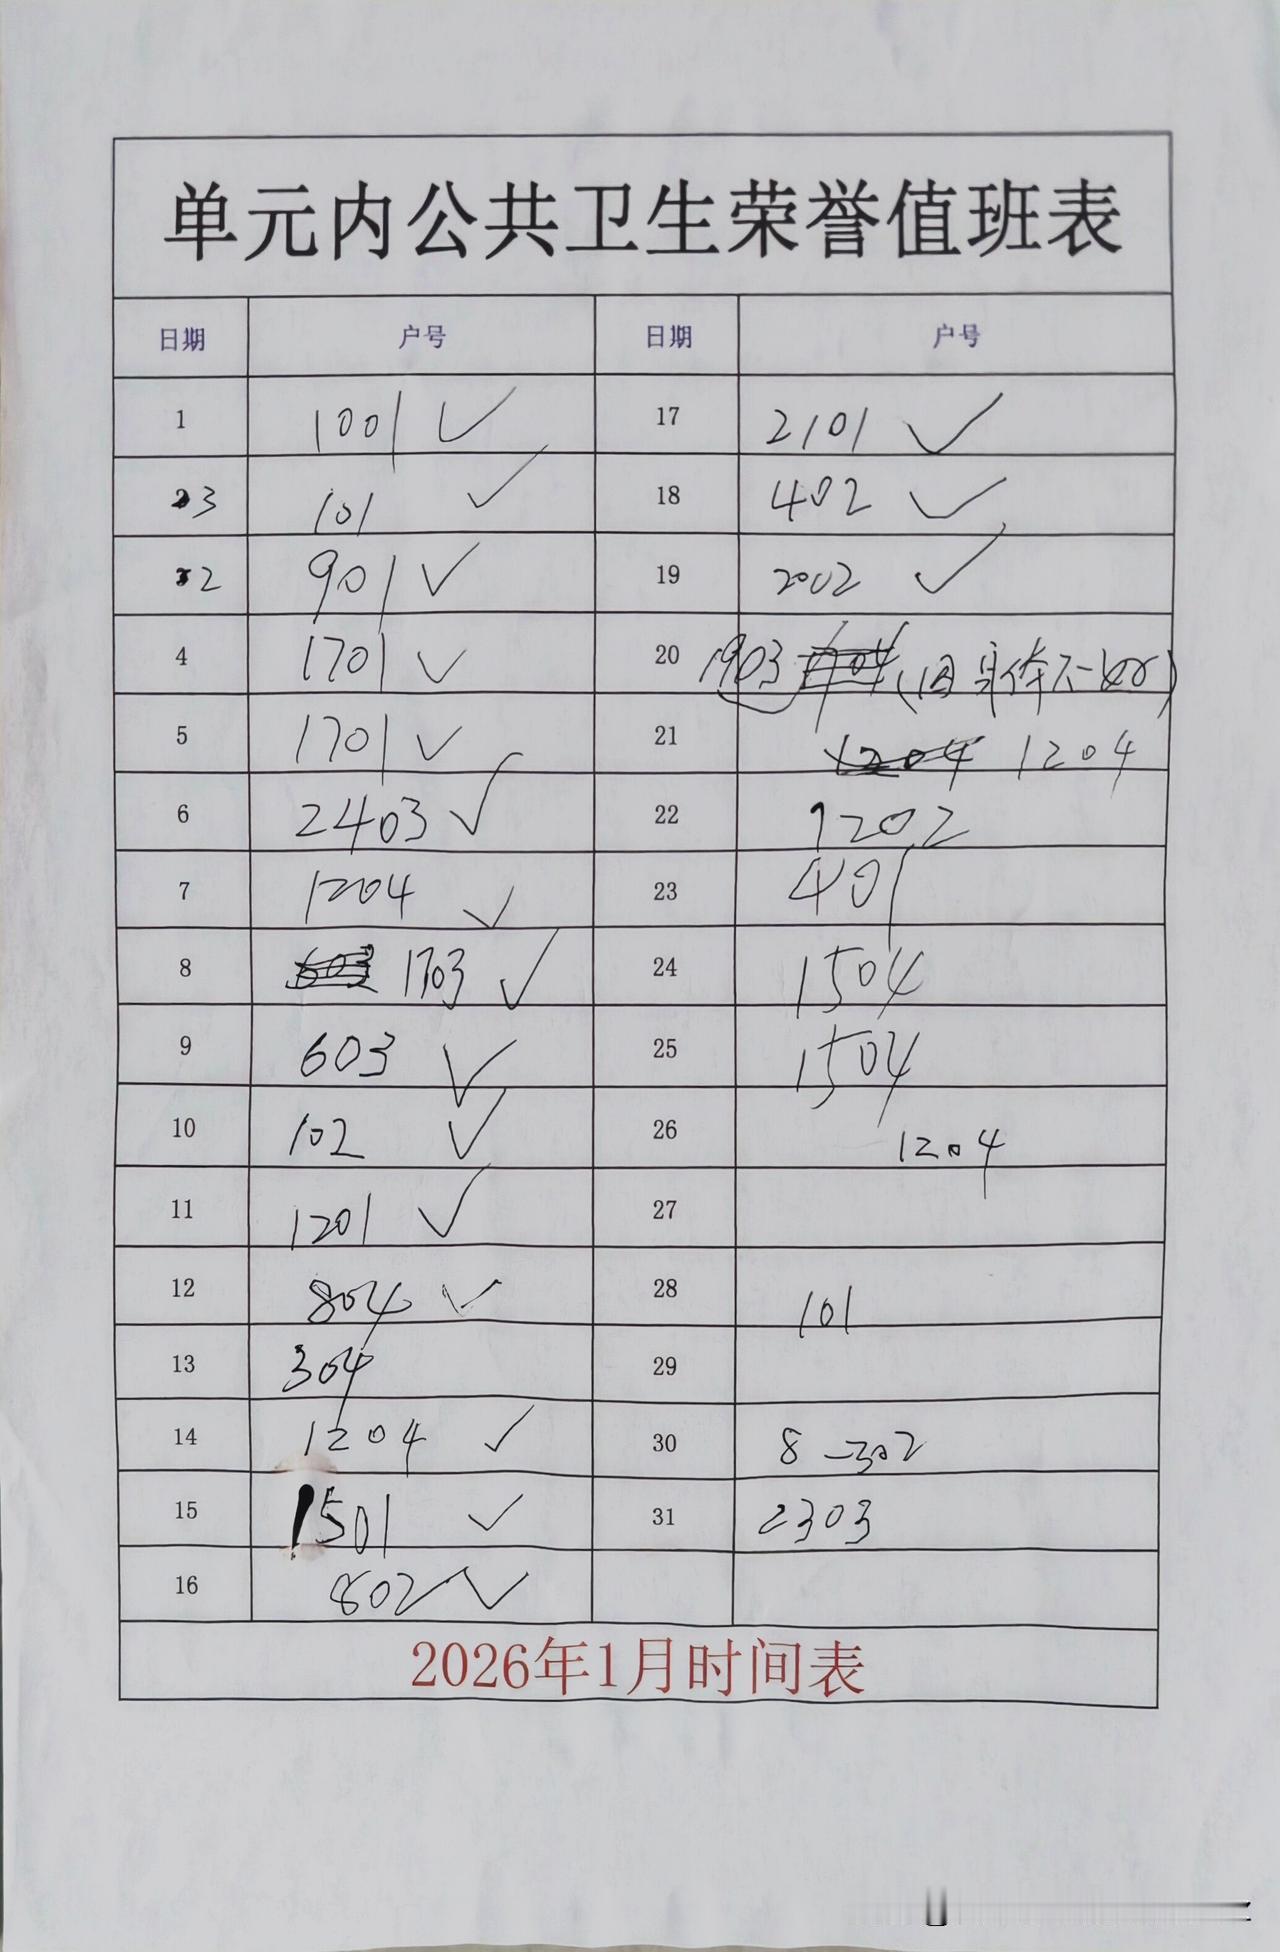 单元内公共卫生荣誉值班表
日期 户号 日期 户号
1 1001 ✓ 17 2101 ✓
3 101 ✓ 18 402 ✓
2 901 ✓ 19 2002 ✓
4 1701 ✓ 20 1903 (因身体不好)
5 1701 ✓ 21 1204 1204
6 2403 ✓ 22 1202
7 1204 ✓ 23 401
8 603 1703 ✓ 24 1504
9 603 ✓ 25 1504
10 102 ✓ 26 1204
11 1201 ✓ 27
12 804 ✓ 28 101
13 304 29
14 1204 ✓ 30 8-302
15 1501 ✓ 31 2303
16 802 ✓
2026年1月时间表